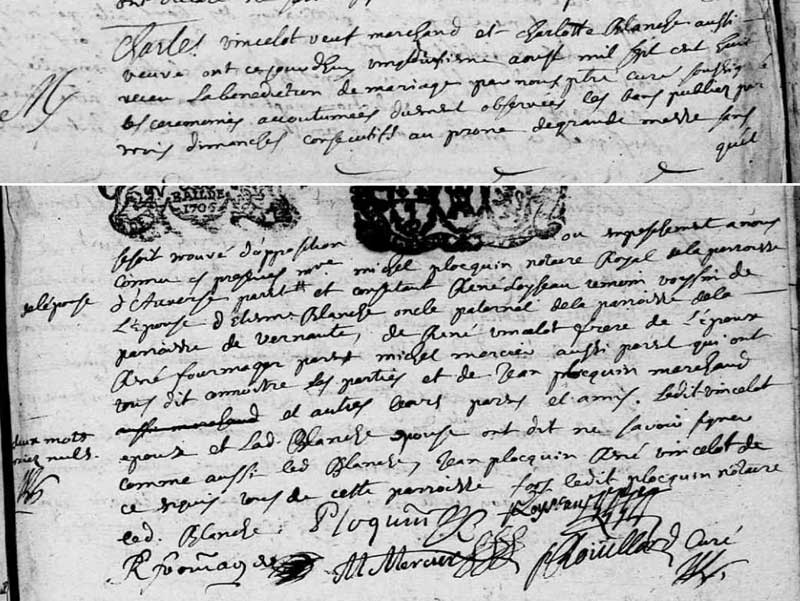 Charles vincelot veuf marchand et Charlotte Blanche aussi
veuve ont cejourdhuy vingtdeuxiesme aoust mil sept cent huit
receu La benediction de mariage par nous ptre curé soussigné
les ceremonies accoutumées duement observées les bans publiez par
trois dimanches consecutifs au prone de grande messe sans
quel
M
BAILDE
1706
se soit trouvé d'opposition ou empeschement a nous
connu es presences michel plocquin notaire Royal de la parroisse
d'Auverse et constant René Loyseau temoin voyssin de
de lépouse
L'Epouse d'Etienne Blanche oncle paternel de la parroisse de la
parroisse de vernante, de René vincelot frere de L'epoux
René fourmager parent michel mercier aussi parent qui ont
tous dit connoitre Les parties et de Jean plocquin marchand
aussi marchand et autres leurs parens et amis. Ledit vincelot
deux mots
nuls.
epoux et Lad. Blanche epouse ont dit ne savoir signer
comme aussi led Blanche, Jean plocquin René vincelot de
ce enquis tous de cette parroisse fors ledit plocquin notaire
Led. Blanche.
Ploquin
Loyseau
M Mercier
Curé